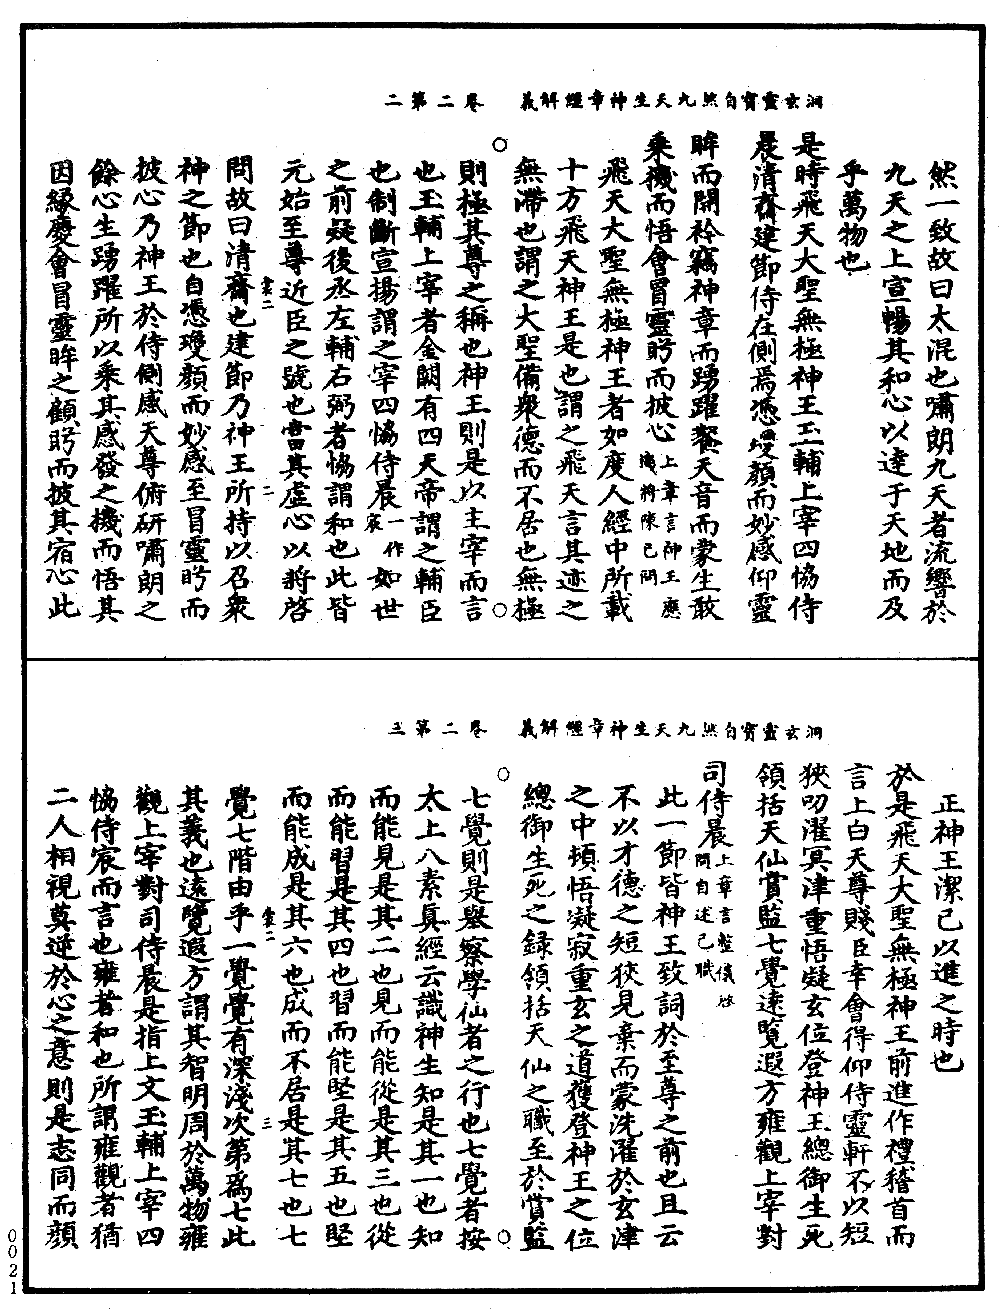 洞玄靈寶自然九天生神章經解義　卷二第二
然一致故曰太混也嘯朗九天者流響於
九天之上宣暢其和心以達于天地而及
乎萬物也
是時飛天大聖無極神王玉輔上宰四協侍
晨清齋建節侍在側焉憑瓊顏而妙感仰靈
眸而開衿竊神章而踴躍餐天音而蒙生敢
乘機而悟會冒靈眄而披心上章言神王應機將陳已問
飛天大聖無極神王者如度人經中所載
十方飛天神王是也謂之飛天言其迹之
無滯也謂之大聖備衆德而不居也無極
則極其尊之稱也神王則是以主宰而言
也玉輔上宰者金闕有四天帝謂之輔臣
也制斷宣揚謂之宰四協侍晨一作宸如世
之前疑後丞左輔右弼者協謂和也此皆
元始至尊近臣之號也當其虛心以將啓
問故曰清齋也建節乃神王所持以召衆
神之節也自憑瓊顏而妙感至冒靈眄而
披心乃神王於侍側感天尊俯研嘯朗之
餘心生踴躍所以乘其感發之機而悟其
因緣慶會冒靈眸之顧眄而披其宿心此
裳二
二
洞玄靈寶自然九天生神章經解義　卷二第三
正神王潔已以進之時也
於是飛天大聖無極神王前進作禮稽首而
言上白天尊賤臣幸會得仰侍靈軒不以短
狹叨濯冥津重悟疑玄位登神王總御生死
領括天仙賞監七覺遠覽遐方雍觀上宰對
司侍晨上章言整儀啓問自述己職
此一節皆神王致詞於至尊之前也且云
不以才德之短狹見棄而蒙洗濯於玄津
之中頓悟凝寂重玄之道獲登神王之位
總御生死之録領括天仙之職至於賞監
七覺則是舉察學仙者之行也七覺者按
太上八素真經云識神生知是其一也知
而能見是其二也見而能從是其三也從
而能習是其四也習而能堅是其五也堅
而能成是其六也成而不居是其七也七
覺七階由乎一覺覺有深淺次第爲七此
其義也遠覽遐方謂其智明周於萬物雍
觀上宰對司侍晨是指上文玉輔上宰四
協侍宸而言也雍者和也所謂雍觀者猶
二人相視莫逆於心之意則是志同而顔
裳二
三
0021